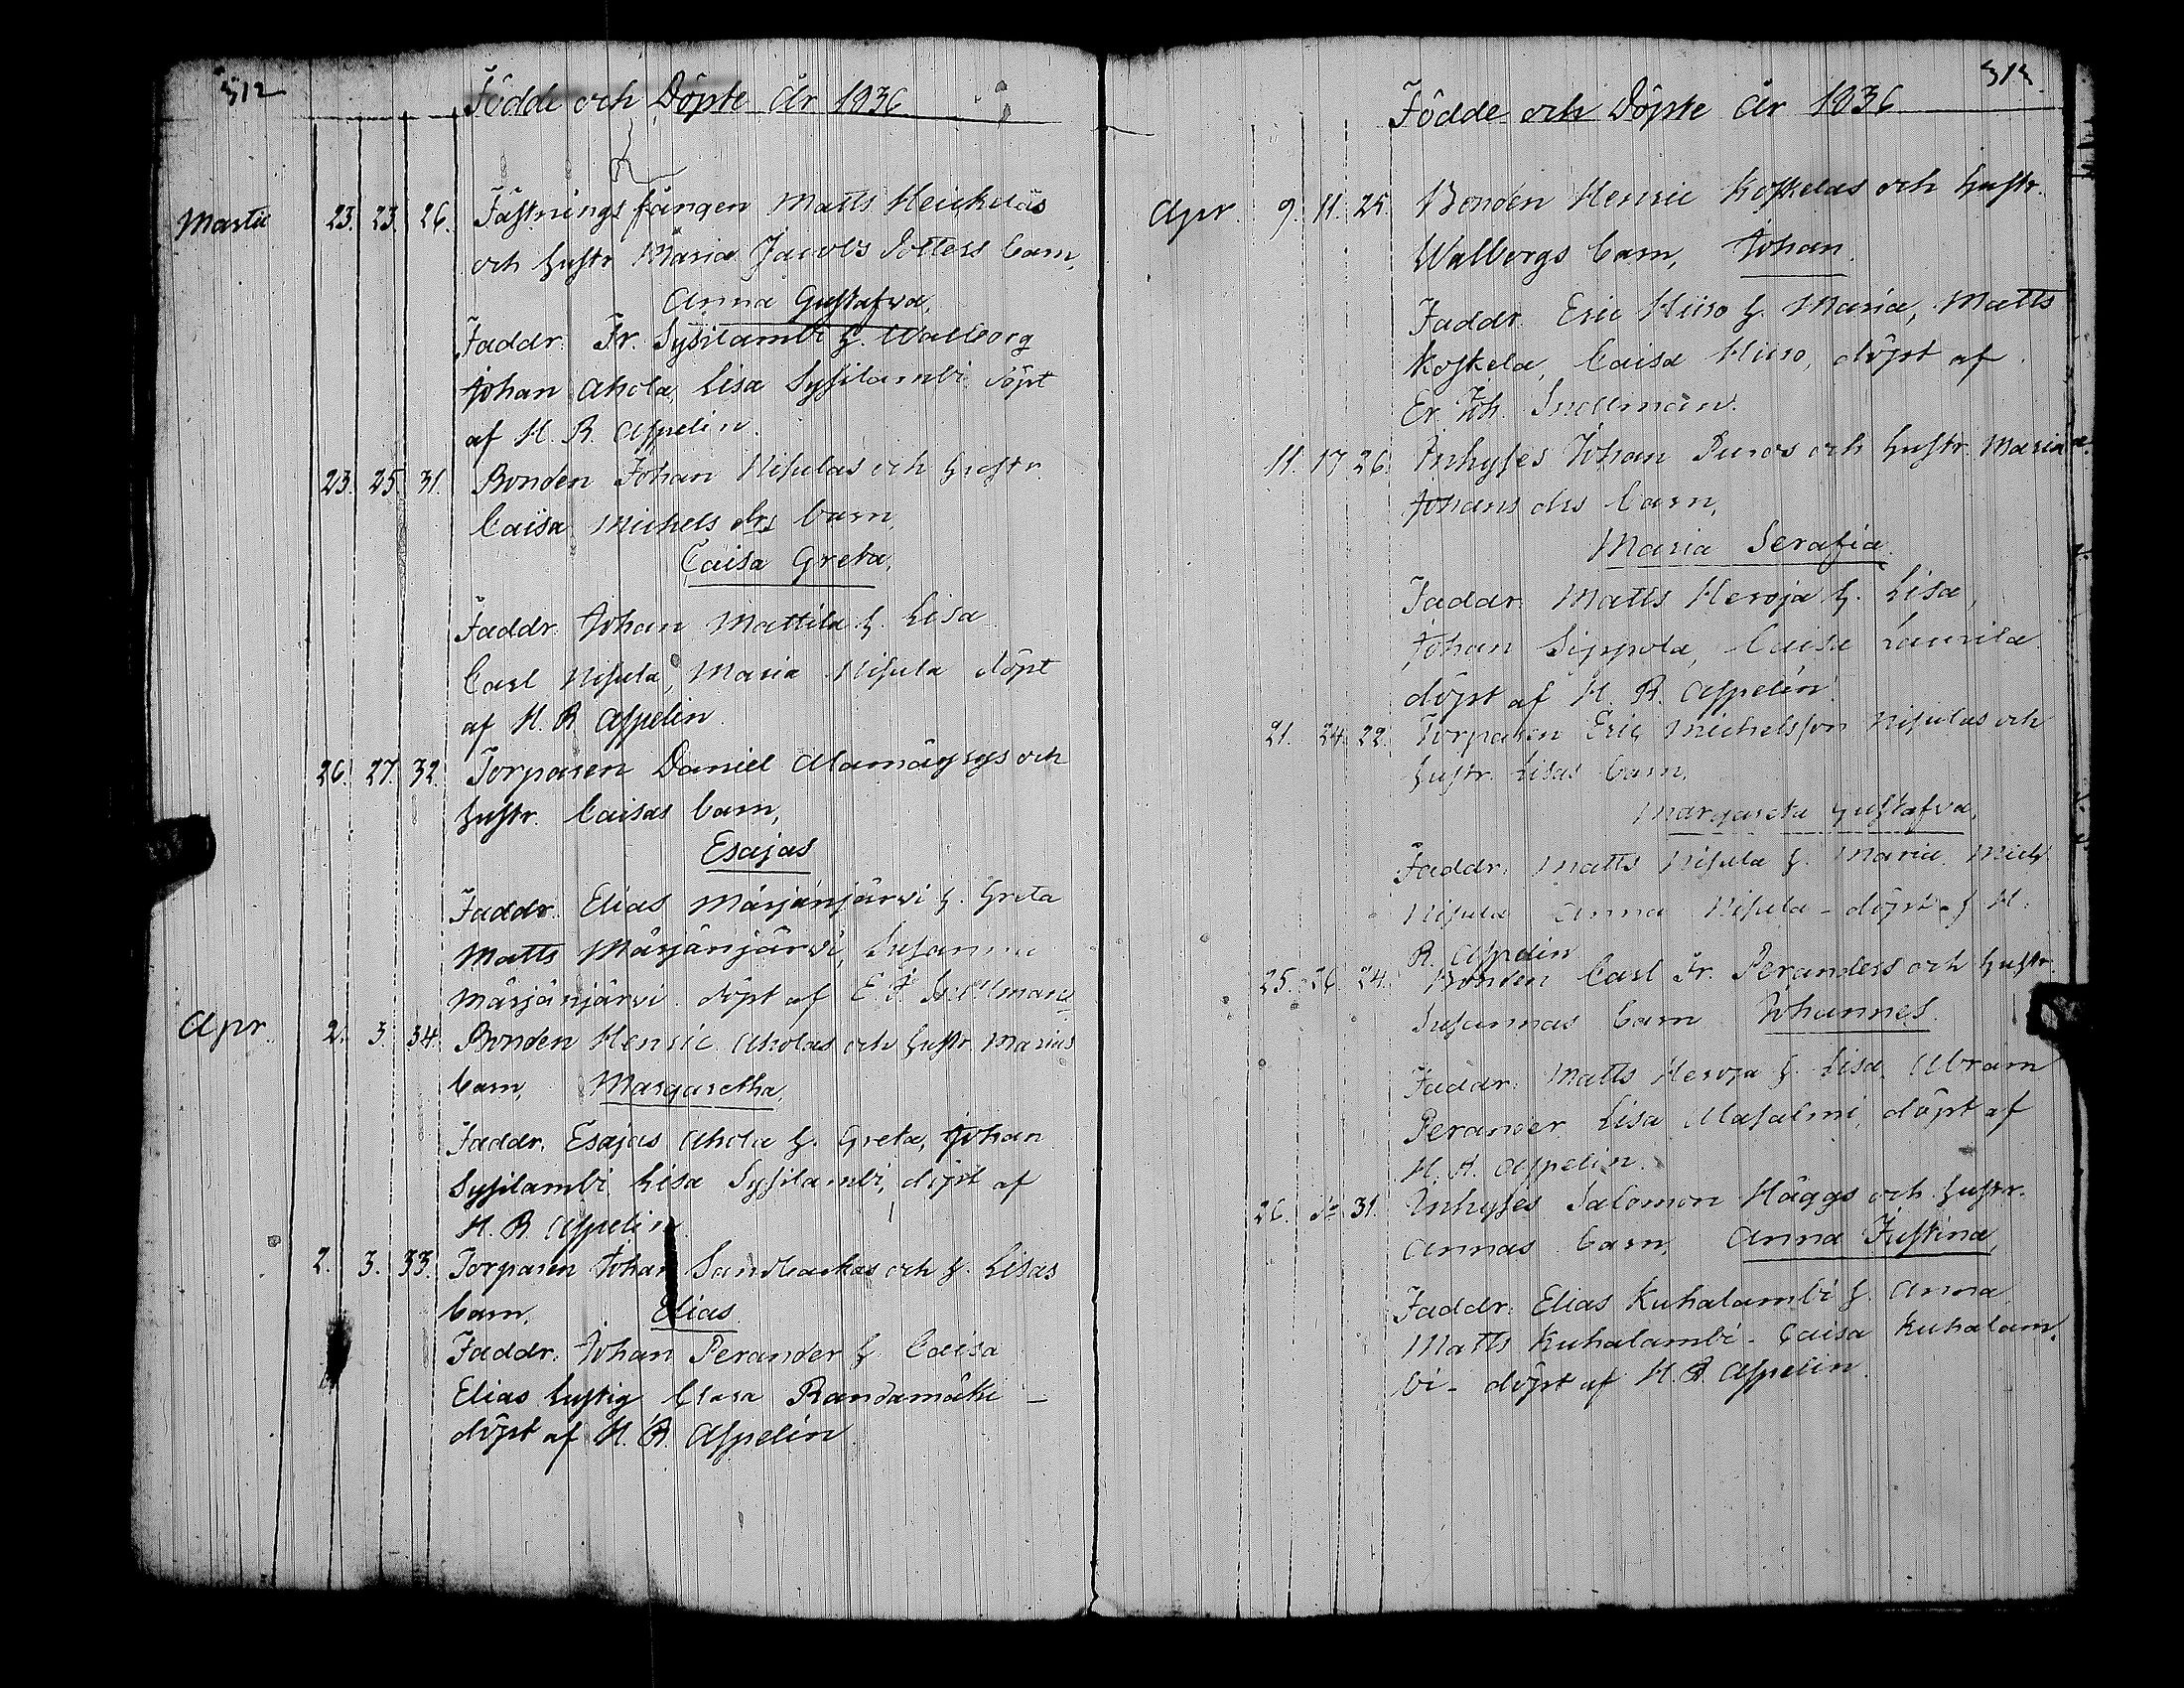 512
Födde och Döpte År 1836
Martii 23. 23. 26. Fästnings fången Matts Heickiläs
och hustr Maria Jacobs Dotters barn,
Anna Gustafva.
Faddr. Fr. Sysilambi h. Walborg
Johan Ahola, Lisa Sysilambi döpt
af H. R. Aspelin.
23. 25. 31. Bonden Johan Nisulas och hustr.
Caisa Michels drs barn,
Caisa Greta.
Faddr. Johan Mattila h. Lisa
Carl Nisula, Maria Nisula döpt
af H. R. Aspelin.
26. 27. 32. Torparen Daniel Alamägrys och
hustr. Caisas barn,
Esajas
Faddr. Elias Märjänjärvi h. Greta
Matts Märjänjärvi, Susanna
Märjänjärvi. döpt af E. J. Snellman
Apr. 2. 3. 34. Bonden Henric Aholas och hustr. Marias
barn, Margaretha.
Faddr. Esajas Ahola h. Greta, Johan
Sysilambi Lisa Sysilambi, döpt af
H. R. Aspelin.
2. 3. 33. Torparen Johan Sandbackas och h. Lisas
barn, Elias.
Faddr. Johan Perander h. Caisa
Elias Lustig Clara Randamäki –
döpt af H. R. Aspelin.
513
Födde och Döpte År 1836
Apr. 9. 11. 25. Bonden Henric Koskelas och hustr.
Walborgs barn, Johan.
Faddr. Eric Hiiro h. Maria, Matts
Koskela, Caisa Hiiro, döpt af
Er. Joh. Snellman.
11. 17 26. Inhyses Johan Puros och hustr. Maria
Johans drs barn,
Maria Serafia
Faddr. Matts Heroja h. Lisa,
Johan Sippola, Caisa Laurila
döpt af H. R. Aspelin.
21. 24. 22. Torparen Eric Michelsson Nisulas och
hustr. Lisas barn,
Margareta Gustafva,
Faddr. Matts Nisula h. Maria. Mich.
Nisula Anna Nisula – döpt af H.
R. Aspelin
25. 26. 24. Bonden Carl Fr. Peranders och hustr.
Susannas barn Johannes.
Faddr. Matts Heroja h. Lisa. Abram
Perander Lisa Alasalmi, döpt af
H. R. Aspelin.
26. do 31. Inhyses Salomon Häggs och hustr.
Annas barn, Anna Justina,
Faddr. Elias Kuhalambi h. Anna
Matts Kuhalambi – Caisa Kuhalam-
bi – döpt af H. R. Aspelin.